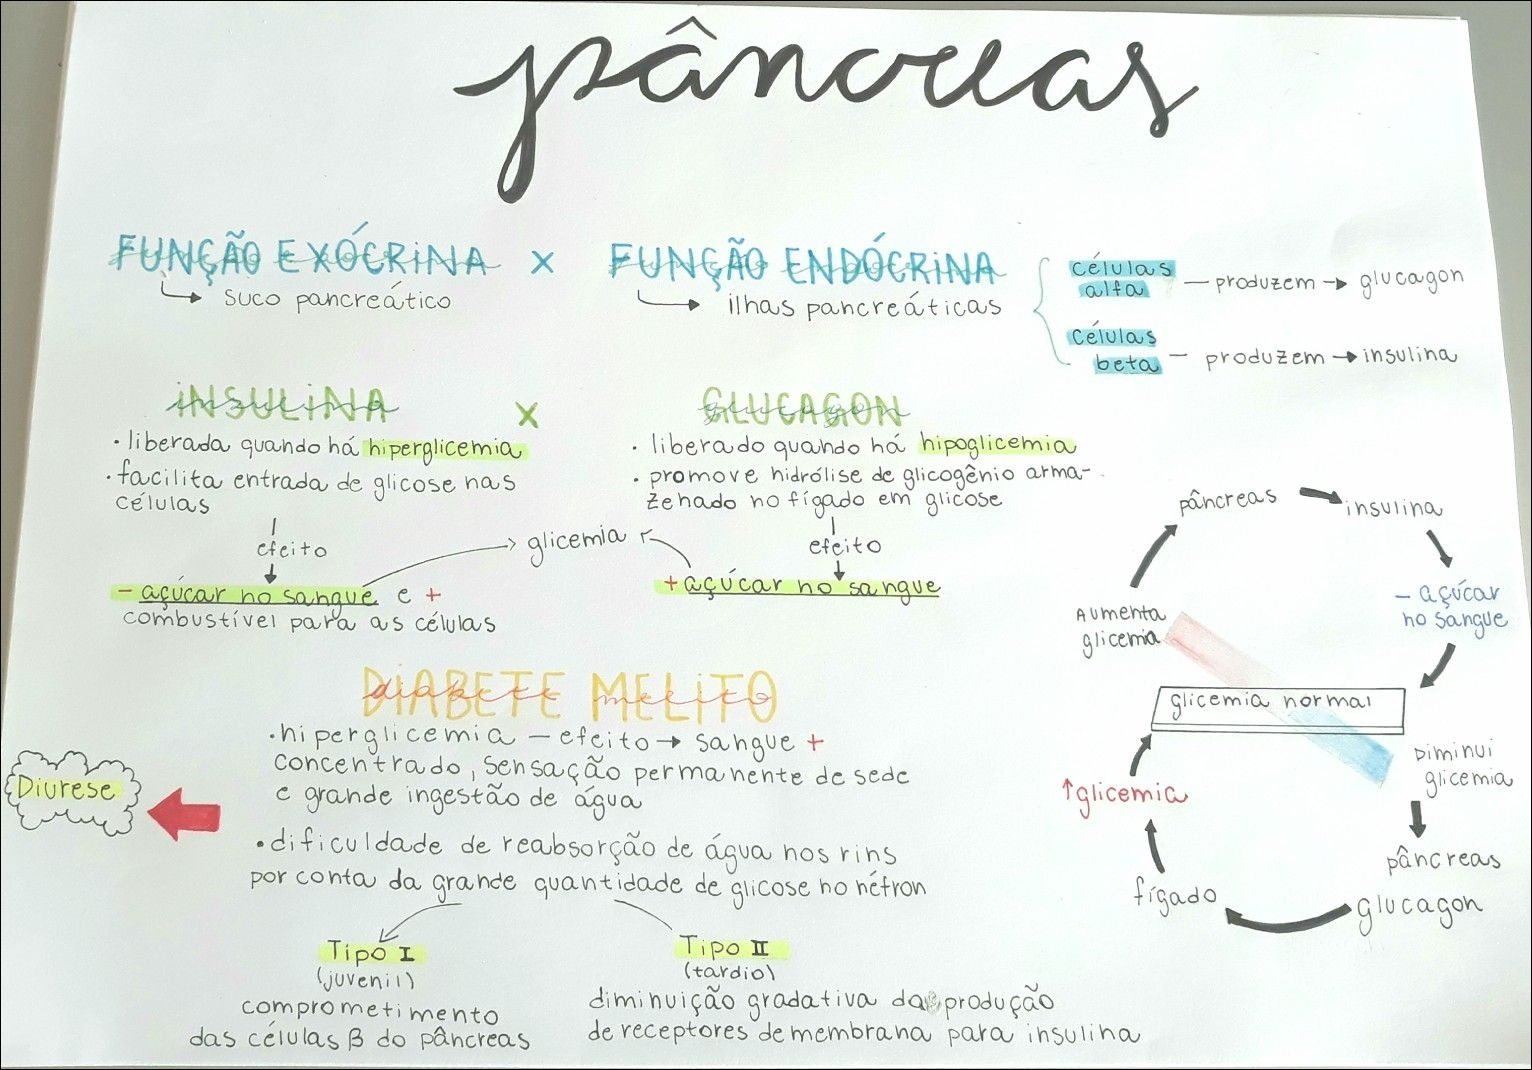 pâncreas
FUNÇÃO EXÓCRINA x FUNÇÃO ENDÓCRINA
suco pancreático
ilhas pancreáticas
células
alfa — produzem → glucagon
células
beta — produzem → insulina
INSULINA x GLUCAGON
• liberada quando há hiperglicemia
• facilita entrada de glicose nas
células
efeito
- açúcar no sangue e +
combustível para as células
glicemia
• liberado quando há hipoglicemia
• promove hidrólise de glicogênio arma-
zenado no fígado em glicose
efeito
+ açúcar no sangue
pâncreas
insulina
- açúcar
no sangue
Aumenta
glicemia
glicemia normal
Diminui
glicemia
↑glicemia
pâncreas
glucagon
fígado
DIABETE MELITO
diabete melito
• hiperglicemia — efeito → sangue +
concentrado, sensação permanente de sede
e grande ingestão de água
Diurese
• dificuldade de reabsorção de água nos rins
por conta da grande quantidade de glicose no néfron
Tipo I
(juvenil)
comprometimento
das células β do pâncreas
Tipo II
(tardio)
diminuição gradativa da produção
de receptores de membrana para insulina